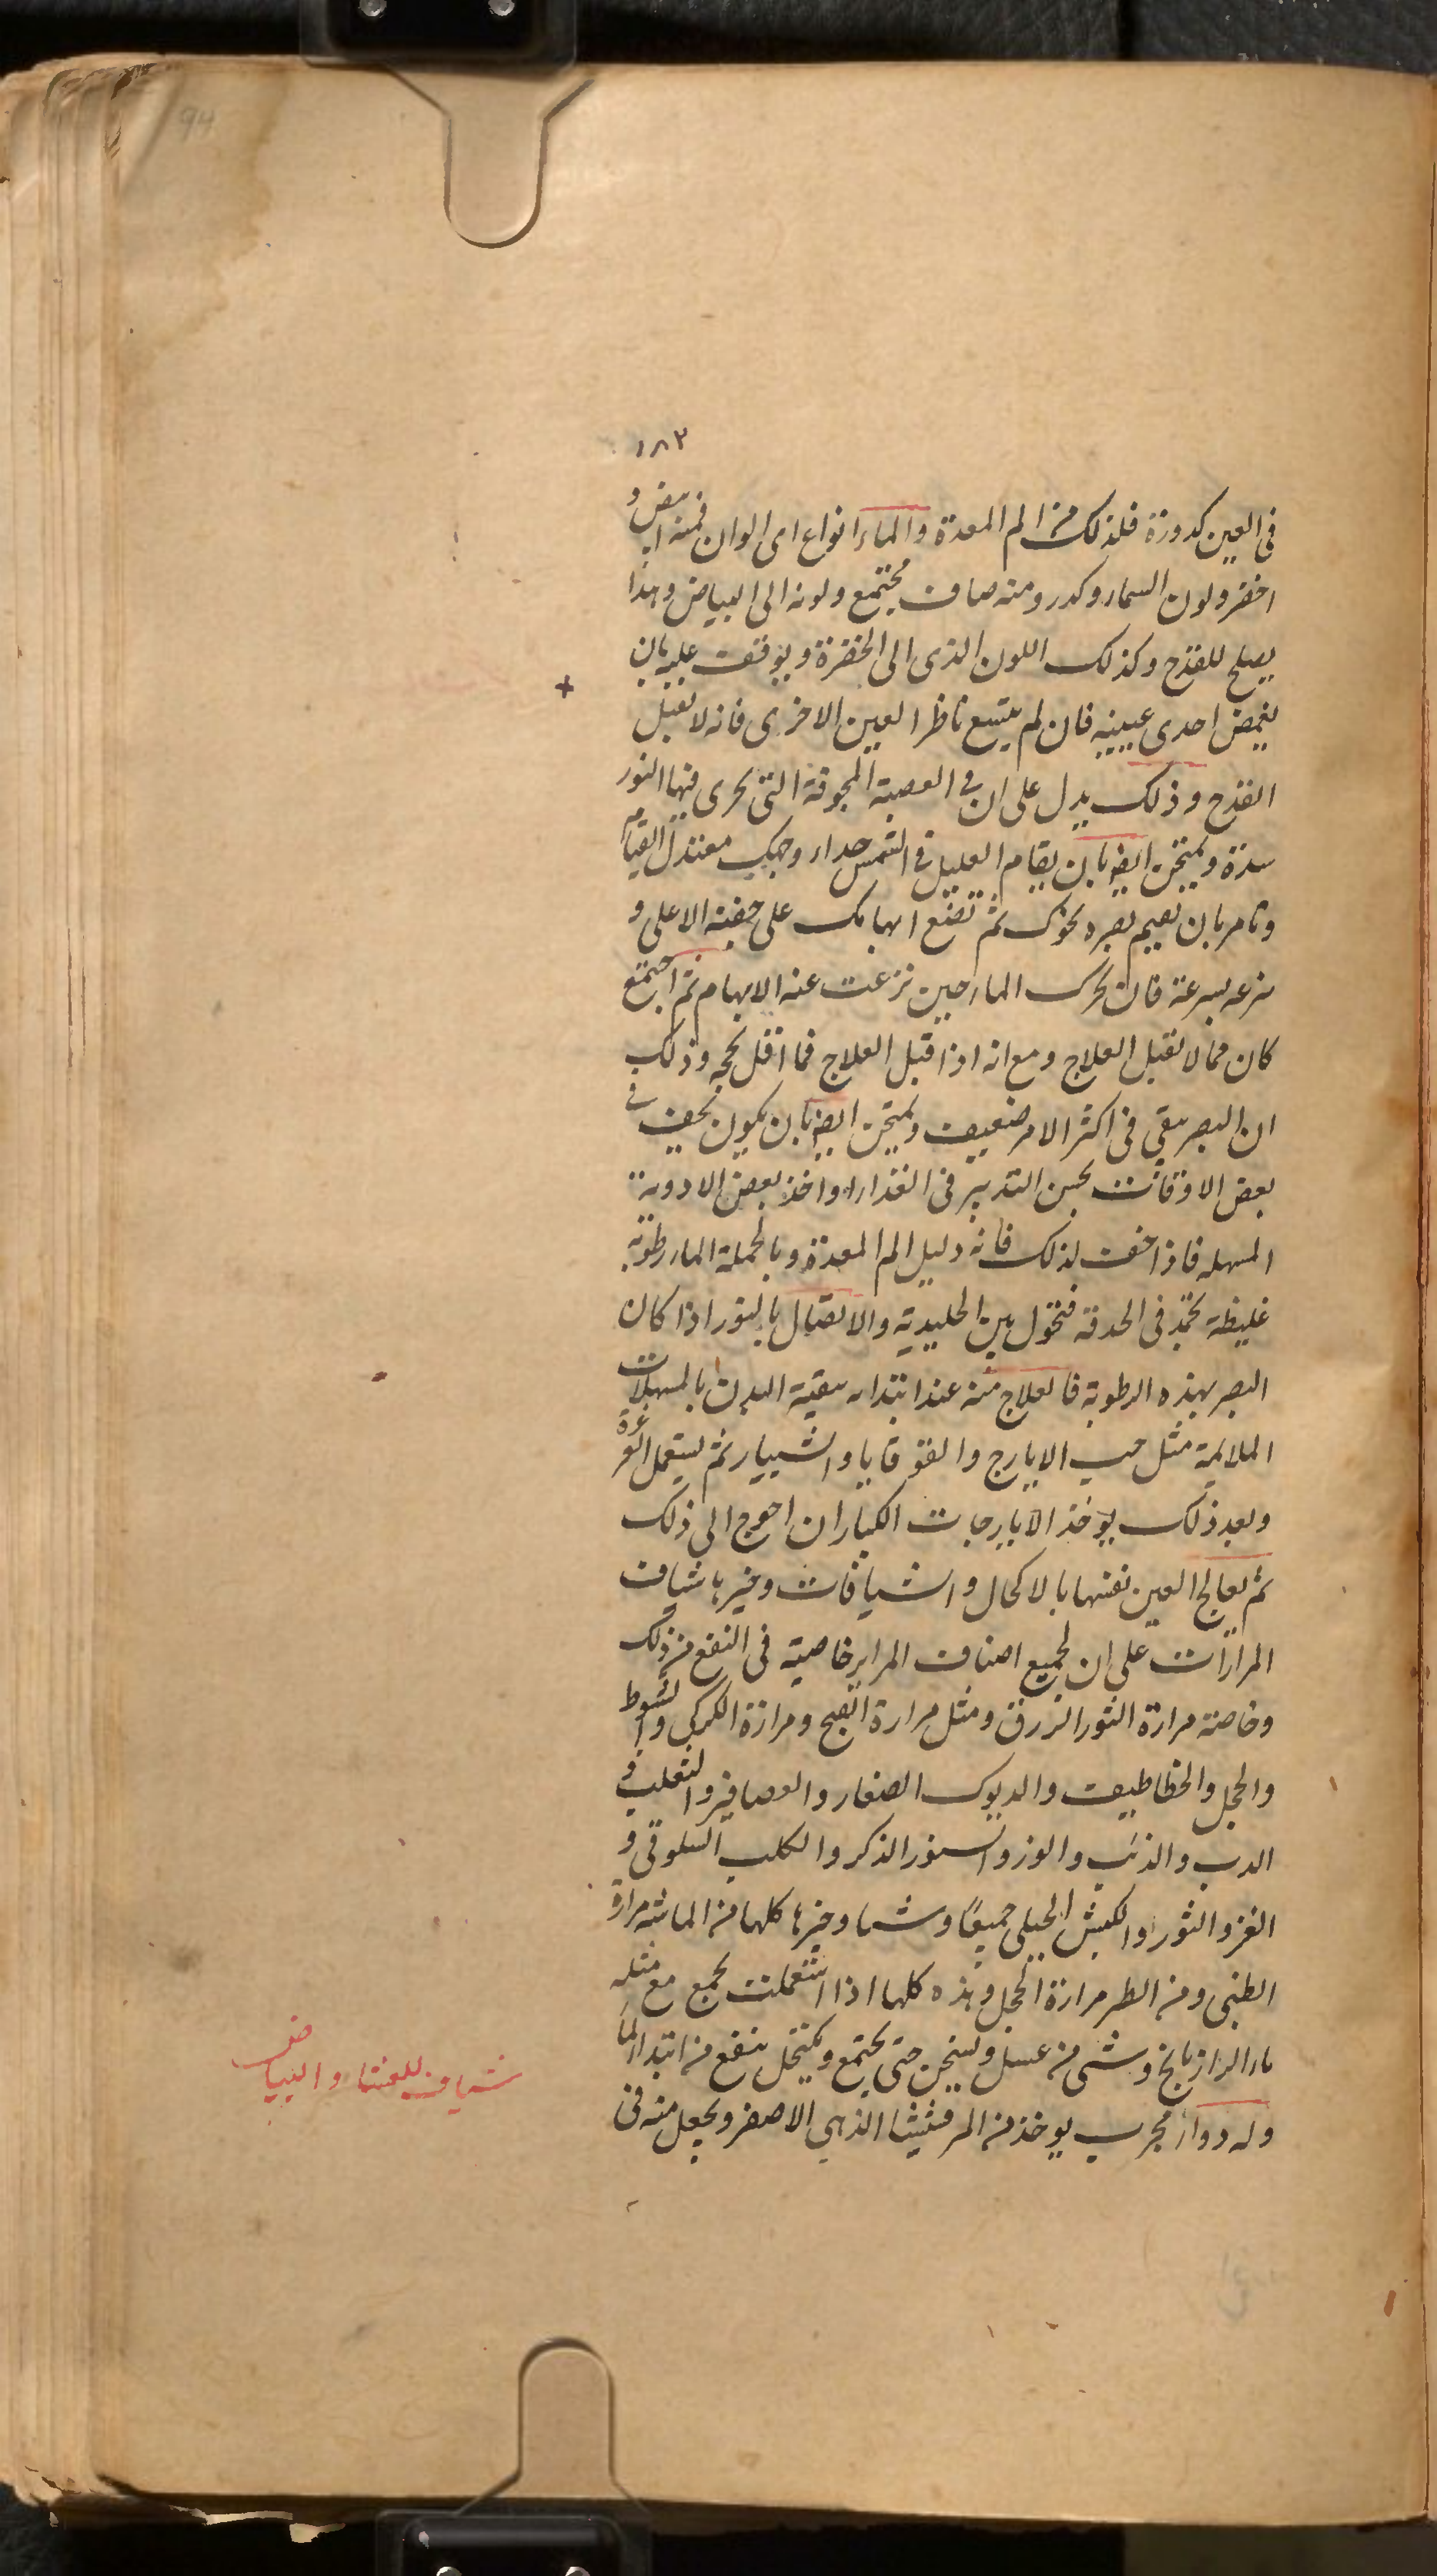 94
١٨٣
فى العين كدورة فلذلك من الم المعدة والماء انواع اى الوان فمنه ابيض و
اخضر ولون السماء وكدر ومنه صاف مجتمع ولونه الى البياض وهذا
يصلح للقدح وكذلك اللون الذى الى الخضرة ويوقف عليه بان
يغمض احدى عينيه فان لم يتسع ناظر العين الاخرى فانه لا يقبل
القدح وذلك يدل على ان فى العصبة المجوفة التى يجرى فيها النور
سدة ويمتحن ايضا بان يقام العليل فى الشمس حداء وجهك معتدل القيام
وتامر بان يقيم بصره نحوك ثم تضع ابهامك على جفنه الاعلى و
تنزعه بسرعة فان تحرك الماء حين نزعت عنه الابهام ثم اجتمع
كان مما لا يقبل العلاج ومع انه اذا قبل العلاج فما اقل نجحه وذلك
ان البصر يبقى فى اكثر الامر ضعيف ويمتحن ايضا بان يكون يخف فى
بعض الاوقات بحسن التدبير فى الغذاء او اخذ بعض الادوية
المسهله فاذا خفت بذلك فانه دليل الم المعدة وبالجملة الماء رطوبة
غليظة تجمد فى الحدقه فتحول بين الجليدية والاتصال بالنور اذا كان
البصر بهذه الرطوبة فالعلاج منه عند ابتدائه بتنقية البدن بالمسهلات
الملايمة مثل حب الايارج والقوقايا والشبيار ثم يستعمل الغرغرة
وبعد ذلك يؤخذ الايارجات الكبار ان احوج الى ذلك
ثم يعالج العين نفسها بالاكحال والشيافات وخيرها شياف
المرارات على ان لجميع اصناف المراير خاصية فى النفع من ذلك
وخاصة مرارة الثور الزرق ومثل مرارة القبج ومرارة الكركى والشبوط
والحجل والخطاطيف والديوك الصغار والعصافير والثعلب و
الدب والذئب والوز والسنور الذكر والكلب السلوقى و
العنز والثور والكبش الجبلى جميعًا وشما وخيرها كلها من الماشية مرارة
الظبى ومن الطير مرارة الحجل وهذه كلها اذا استعملت تجمع مع مثله
ماء الرازيانج وشى من عسل ويسخن حتى يجتمع ويكتحل ينفع من ابتداء الماء
وله دواء مجرب يوخذ من المرقشيثا الذهبى الاصفر ويجعل منه فى
شياف للعشا والبياض